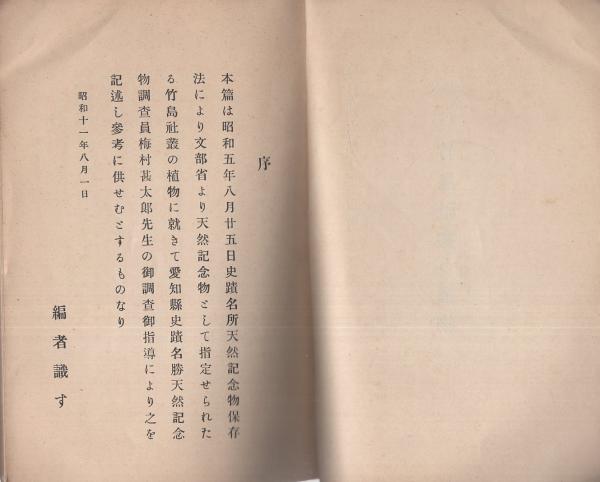 序
本篇は昭和五年八月廿五日史蹟名所天然記念物保存
法により文部省より天然記念物として指定せられた
る竹島社叢の植物に就きて愛知縣史蹟名勝天然記念
物調査員梅村甚太郎先生の御調査御指導により之を
記述し參考に供せむとするものなり
昭和十一年八月一日
編者識す